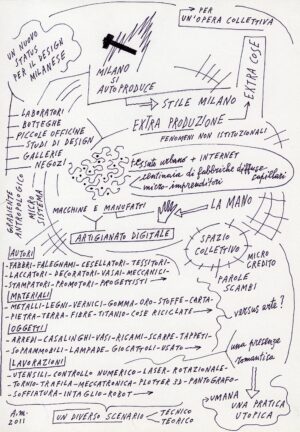 UN NUOVO
STATUS
PER IL DESIGN
MILANESE
PER
UN'OPERA COLLETTIVA
MILANO
SI
AUTOPRODUCE
EXTRA COSE
STILE MILANO
EXTRA PRODUZIONE
FENOMENI NON ISTITUZIONALI
LABORATORI
BOTTEGHE
PICCOLE OFFICINE
STUDI DI DESIGN
GALLERIE
NEGOZI
GRADIENTE
ANTROPOLOGICO
MICRO
SISTEMA
tessuto urbano + INTERNET
centinaia di fabbriche diffuse
micro-imprenditori capillari
MACCHINE E MANUFATTI
LA MANO
ARTIGIANATO DIGITALE
SPAZIO
COLLETTIVO
MICRO
CREDITO
PAROLE
SCAMBI
AUTORI
-FABBRI-FALEGNAMI-CESELLATORI-TESSITORI-
-LACCATORI-DECORATORI-VASAI-MECCANICI-
-STAMPATORI-PROMOTORI-PROGETTISTI
MATERIALI
-METALLI-LEGNI-VERNICI-GOMMA-ORO-STOFFE-CARTA-
-PIETRA-TERRA-FIBRE-TITANIO-COSE RICICLATE
versus arte?
OGGETTI
-ARREDI-CASALINGHI-VASI-RICAMI-SCARPE-TAPPETI-
-SOPRAMMOBILI-LAMPADE-GIOCATTOLI-USATO
una presenza
romantica
LAVORAZIONI
-UTENSILI-CONTROLLO NUMERICO-LASER-ROTAZIONALE-
-TORNIO-TRAFILA-MECCATRONICA-PLOTTER 3D-PANTOGRAFO-
-SOFFIATURA-INTAGLIO-ROBOT
UMANA
UNA PRATICA
UTOPICA
A.M.
2011
UN DIVERSO SCENARIO
TECNICO
TEORICO